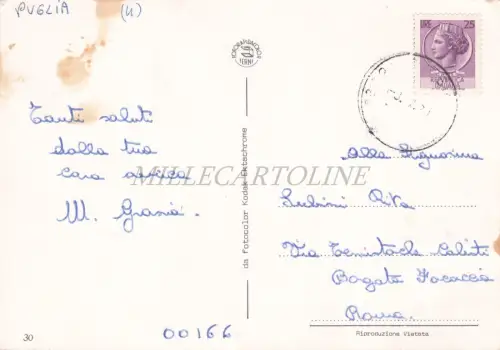 PUGLIA (U)
LIRE 25
Tanti saluti
dalla tua
cara amica
M. Grazia.
00166
30
MILLECARTOLINE
da Fotocolor Kodak Ektachrome
Alla Signorina
Lubini Rita
Via Temistocle Calisti
Bogata Focaccia
Roma.
Riproduzione Vietata